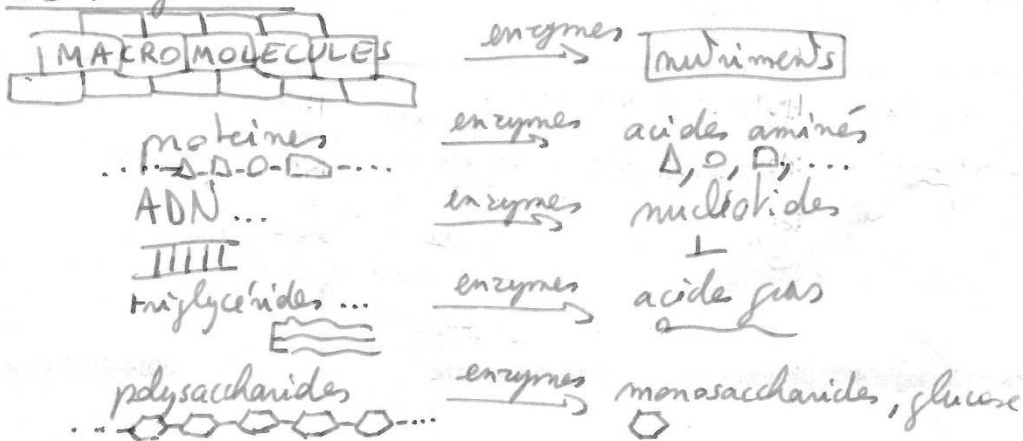 MAKROMOLECULES enzymes nutriments
proteines enzymes acides aminés
ADN... enzymes nucléotides
triglycérides ... enzymes acides gras
polysaccharides enzymes monosaccharides, glucose